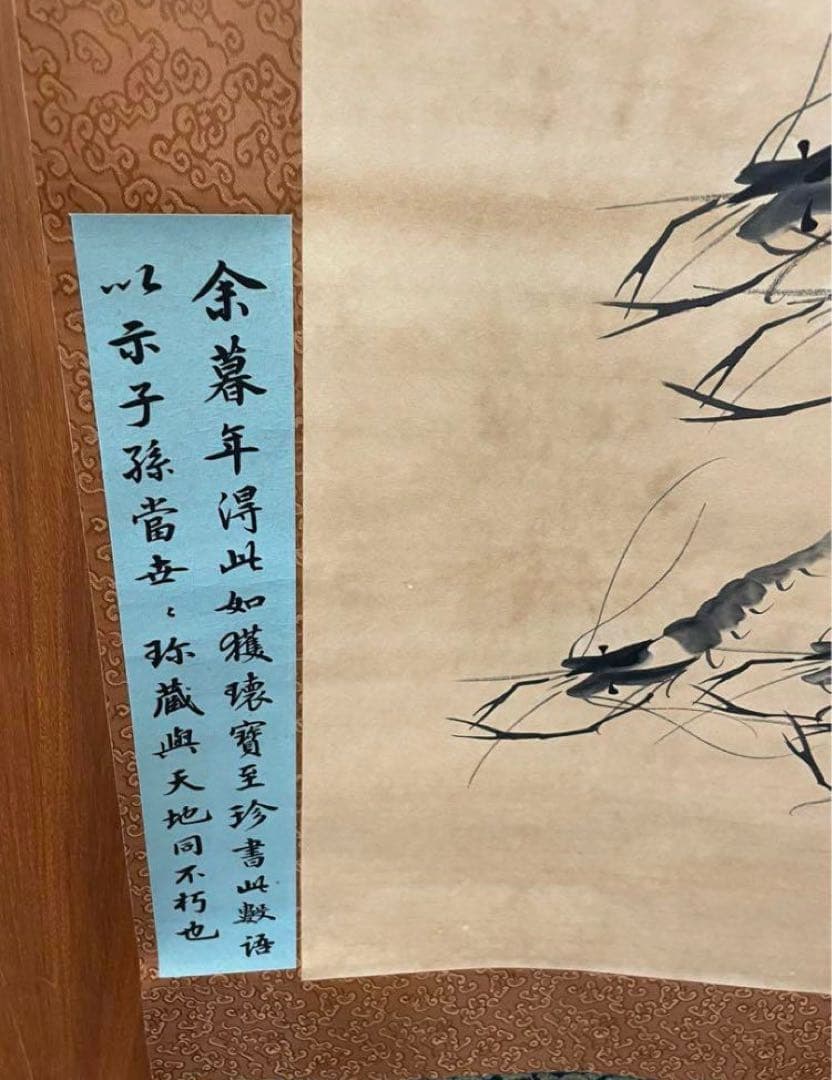 余暮年得此如獲瓌寶至珍書此數语
以示子孫當世〻珎藏與天地同不朽也